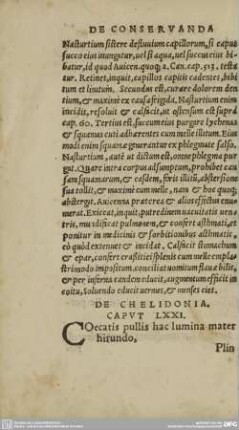 DE CONSERVANDA
Nasturtium sistere defluuium capillorum, si caput
succo eius inungatur, uel si aqua, uel succus eius bi-
batur, id quod Auicen. quoque 2. Can. cap. 513. testa-
tur. Retinet, inquit, capillos capitis cadentes, bibi-
tum et linitum. Secundus est, curare dolorem den
tium, & maximè ex causa frigida. Nasturtium enim
incidit, resoluit & calfacit, ut ostensum est suprà
cap. 60. Tertius est, succum eius purgare furfures
& squamas cuti adhærentes cum melle illitum. Eius
modi enim squamæ generantur ex phlegmate salso.
Nasturtium, autē ut dictum est, omne phlegma pur
gat. Quare intra corpus adsumptum, prohibet cau
sam squamarum, & easdem, si sit illitū, abstersione
sua tollit, & maximè cum melle, nam & hoc quoque
abstergit. Auicenna præterea & alios effectus enu-
merat. Exiccat, inquit, putredinem uacuitatis uen
tris, mundificat pulmonem, & confert asthmati, et
ponitur in medicinis & sorbitionibus asthmatic.
eò quòd extenuet & incidat. Calfacit stomachum
& epar, confert crassitiei splenis cum melle empla-
stri modo impositum. conciliat uomitum flauæ bilis,
& per inferna eandem educit, augmentum efficit in
coitu, soluendo educit uermes, & menses ciet.
DE CHELIDONIA.
CAPVT LXXI.
COecatis pullis hac lumina mater
hirundo,
Plin